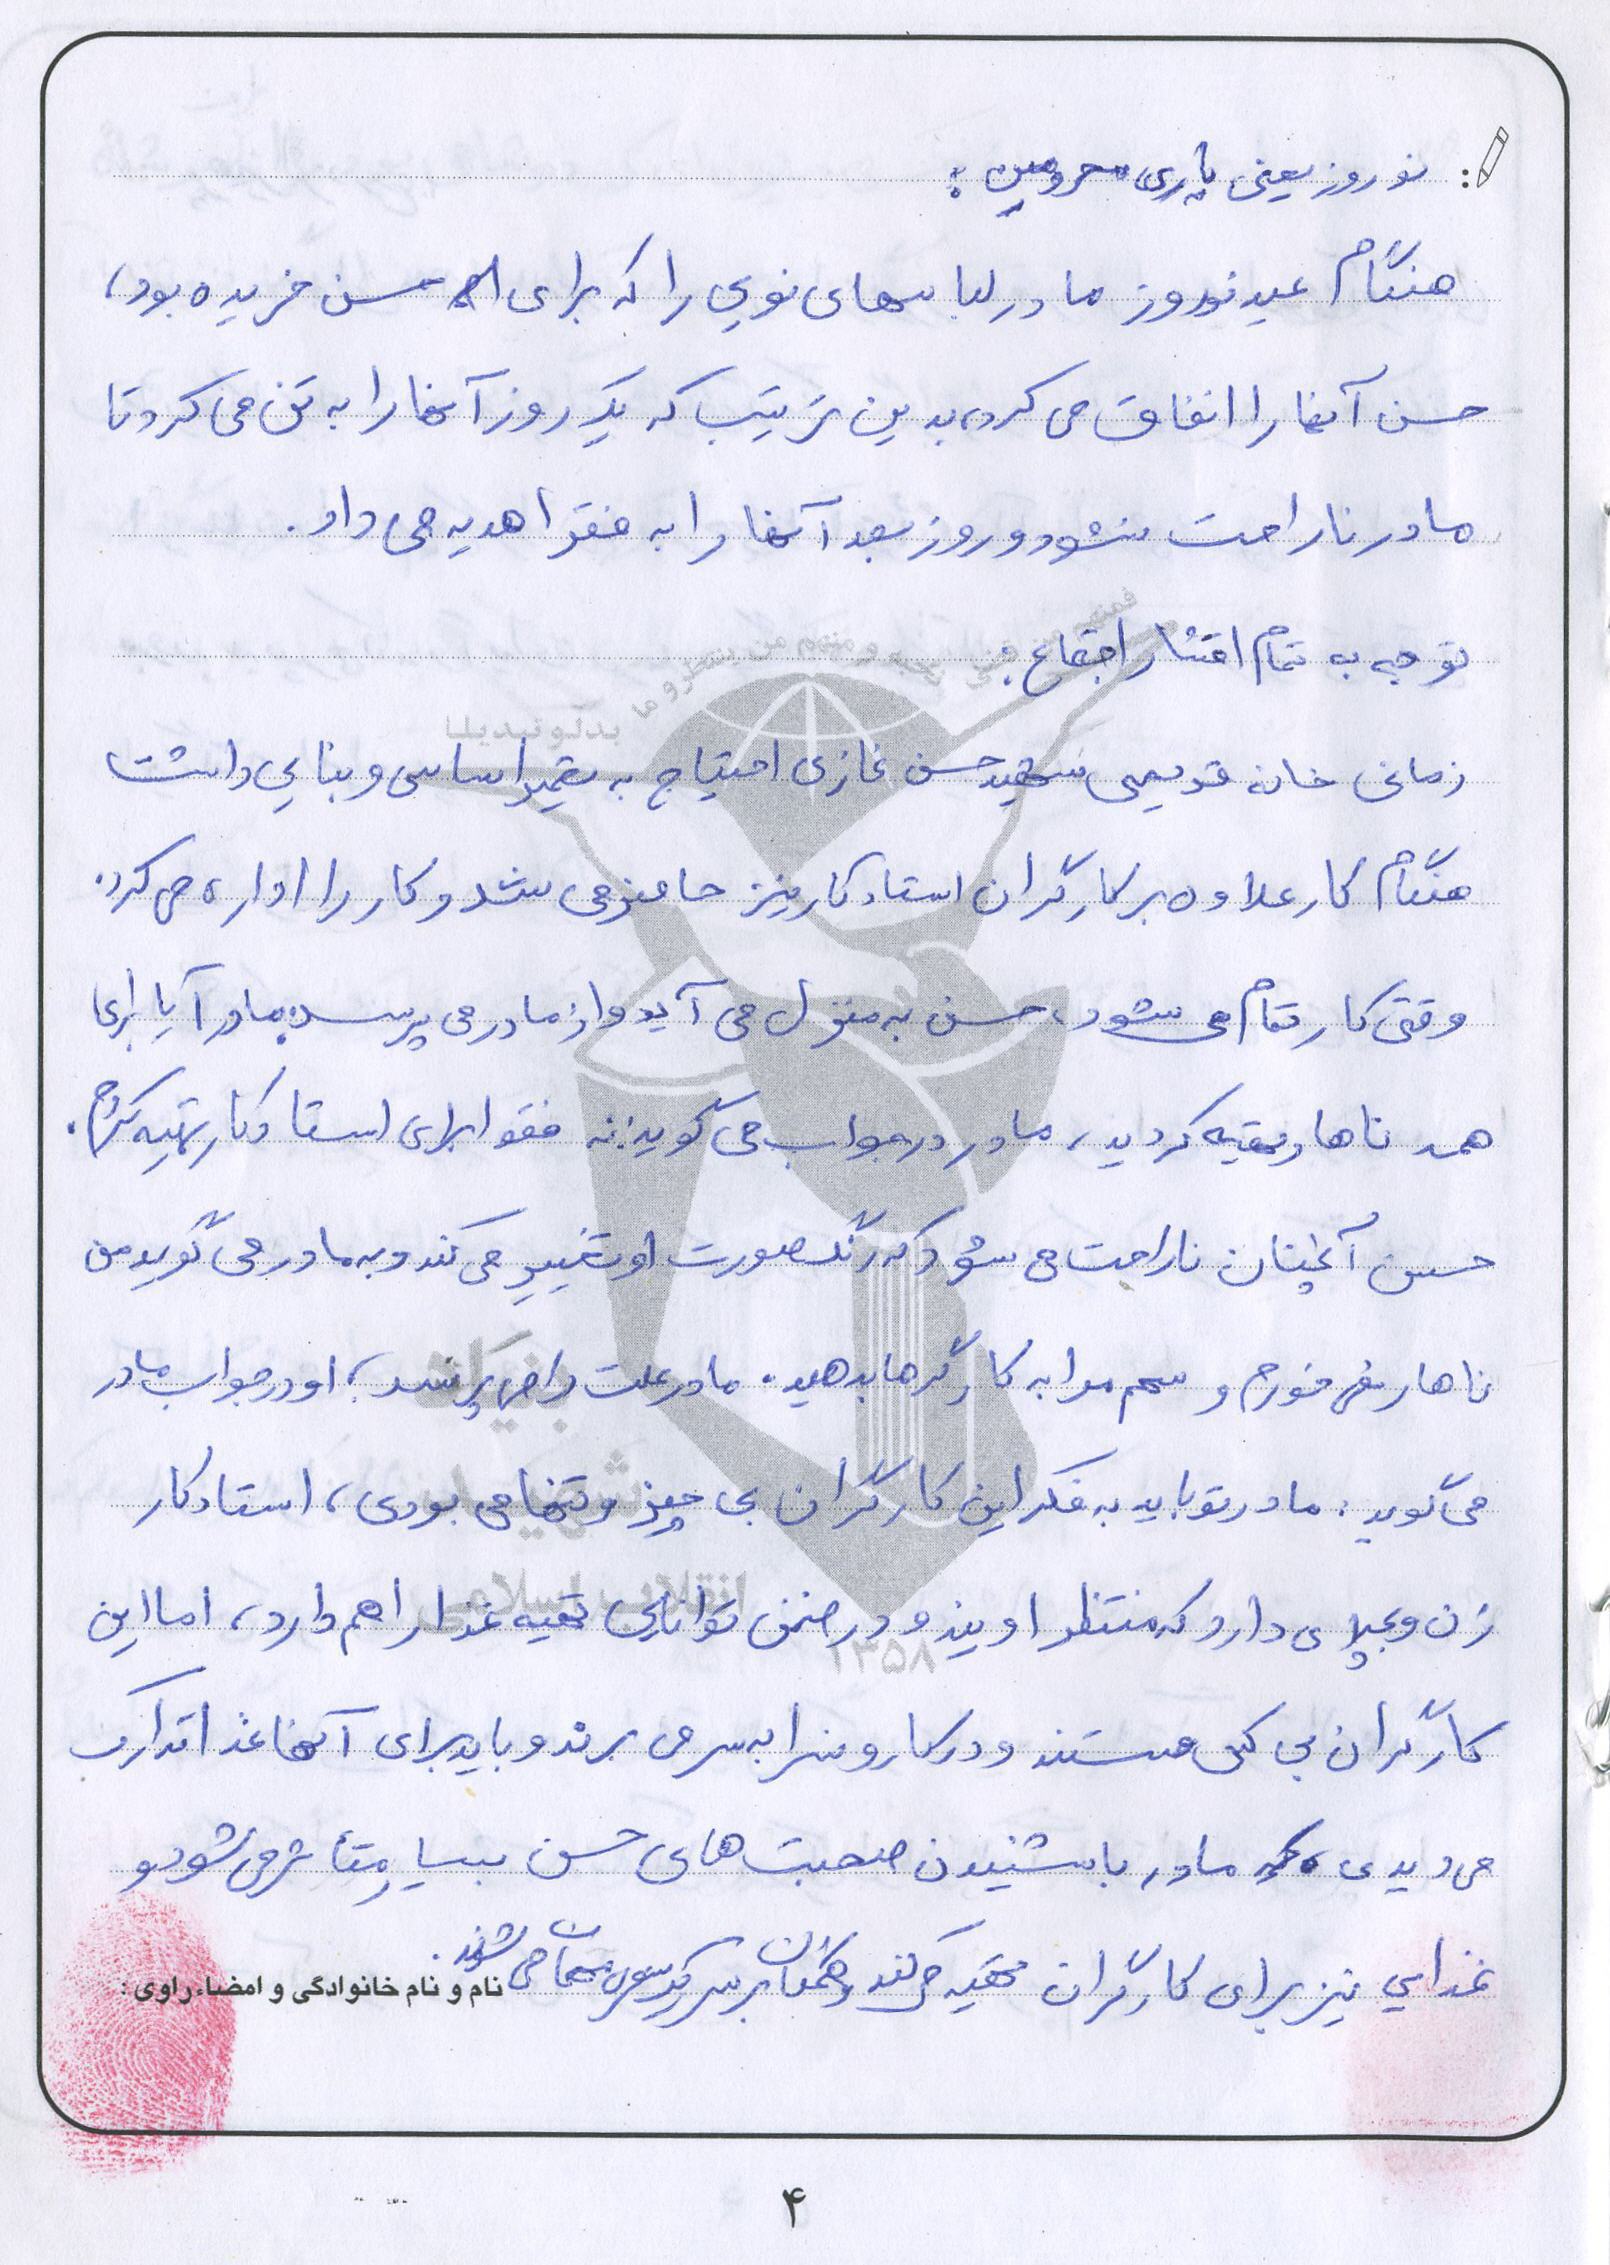 : نوروز یعنی یاری محرومین :
هنگام عید نوروز مادر لباسهای نویی را که برای حسن خریده بود،
حسن آنها را انفاق می کرد، بدین ترتیب که یک روز آنها را به تن می کرد تا
مادر ناراحت نشود و روز بعد آنها را به فقرا هدیه می داد.
توجه به تمام اقشار اجتماع :
زمانی خانه قدیمی شهید حسن غازی احتیاج به تعمیر اساسی و بنایی داشت
هنگام کار علاوه بر کارگران استادکار نیز حاضر می شد و کار را اداره می کرد.
وقتی کار تمام می شود، حسن به منزل می آید و از مادر می پرسد: مادر آیا برای
همه ناهار تهیه کردید، مادر در جواب می گوید: نه فقط برای استادکار تهیه کردم.
حسن آنچنان ناراحت می شود که رنگ صورت او تغییر می کند و به مادر می گوید من
ناهار نمی خورم و سهم مرا به کارگرها بدهید. مادر علت را می پرسد، او در جواب مادر
می گوید: مادر تو باید به فکر این کارگران بی چیز و تنها می بودی، استادکار
زن و بچه ای دارد که منتظر اویند و در ضمن توانایی تهیه غذا را هم دارد، اما این
کارگران بی کس هستند و در کاروانسرا به سر می برند و باید برای آنها غذا تدارک
می دیدی، مادر با شنیدن صحبت های حسن بسیار متأثر می شود و
غذایی نیز برای کارگران تهیه می کند و همگان بر سر یک سفره مهمان می شوند.
نام و نام خانوادگی و امضاء راوی :
بنیاد
شهید
انقلاب اسلامی
۱۳۵۸
۴